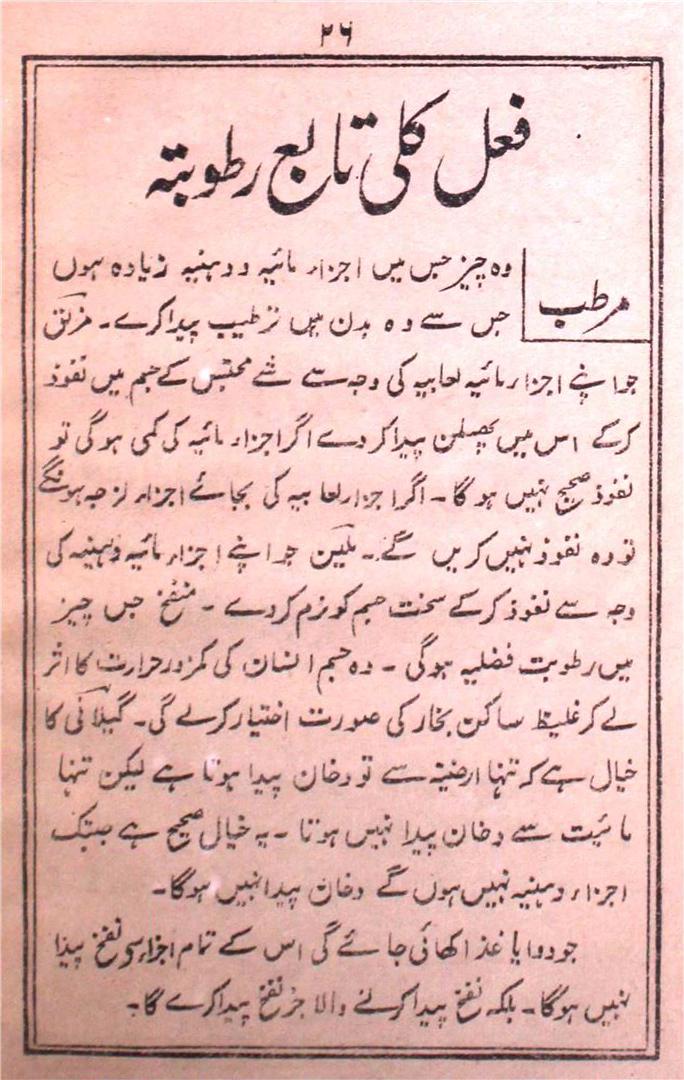 ۲۶
فعل کلی تابع رطوبتہ
مرطب
وہ چیز جس میں اجزاء مائیہ و دہنیہ زیادہ ہوں
جس سے وہ بدن میں ترطیب پیدا کرے۔ مزلق
جو اپنے اجزاء مائیہ لعابیہ کی وجہ سے شے محتبس کے جسم میں نفوذ
کرکے اس میں پھسلن پیدا کر دے اگر اجزاء مائیہ کی کمی ہوگی تو
نفوذ صحیح نہیں ہوگا۔ اگر اجزاء لعابیہ کی بجائے اجزاء لزجہ ہونگے
تو وہ نفوذ نہیں کریں گے۔ ملین جو اپنے اجزاء مائیہ دہنیہ کی
وجہ سے نفوذ کرکے سخت جسم کو نرم کر دے۔ منفخ جس چیز
میں رطوبت فضلیہ ہوگی۔ وہ جسم انسان کی کمزور حرارت کا اثر
لے کر غلیظ ساکن بخار کی صورت اختیار کرلے گی۔ گیلانی کا
خیال ہے کہ تنہا ارضیۃ سے تو دخان پیدا ہوتا ہے لیکن تنہا
مائیت سے دخان پیدا نہیں ہوتا۔ یہ خیال صحیح ہے جبتک
اجزاء دہنیہ نہیں ہوں گے دخان پیدا نہیں ہوگا۔
جو دوا یا غذا کھائی جائے گی اس کے تمام اجزاء سے نفخ پیدا
نہیں ہوگا۔ بلکہ نفخ پیدا کرنے والا جز نفخ پیدا کرے گا۔